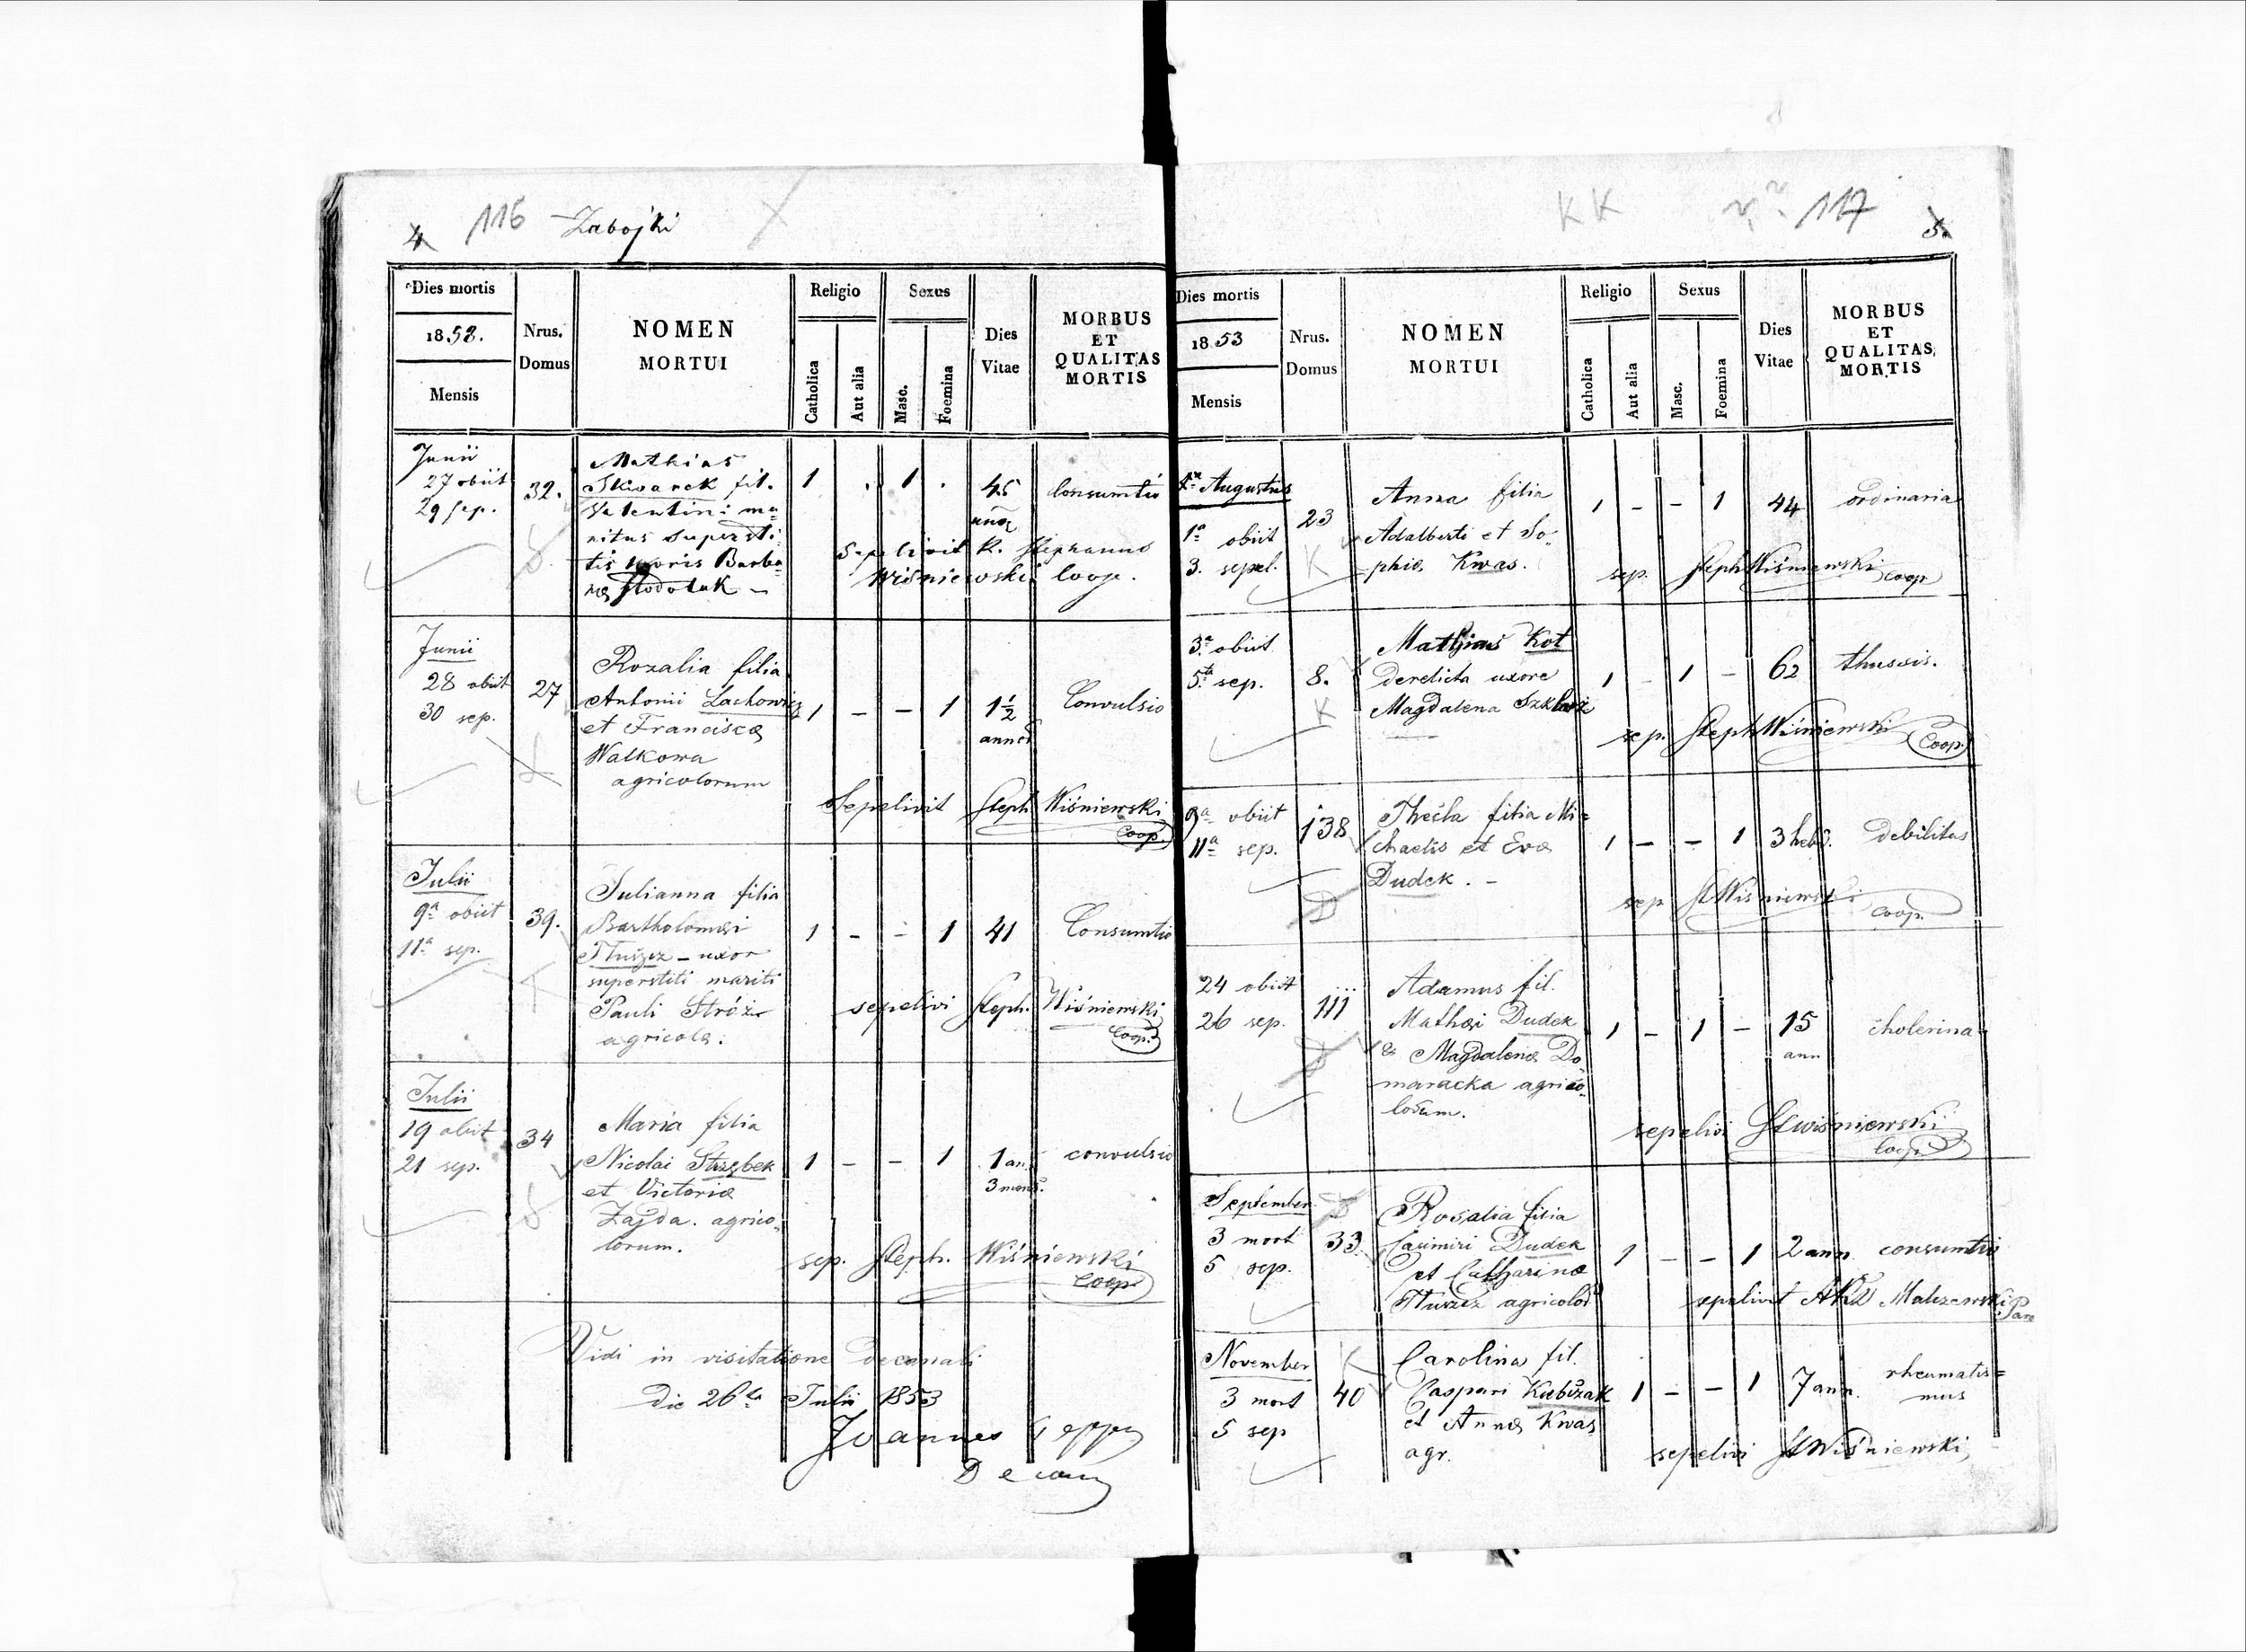 4 116 Zabojki
Dies mortis
1853.
Mensis
Nrus.
Domus
NOMEN
MORTUI
Religio
Catholica
Aut alia
Sexus
Masc.
Foemina
Dies
Vitae
MORBUS
ET
QUALITAS
MORTIS
Junii
27 obiit
29 sep.
32.
Mathias
Skwarek fil.
Valentini ma=
ritus supersti=
tis uxoris Barba=
ræ Stodolak –
1 . 1 .
45
Consumtio
Sepelivit R. Stephanus
Wiśniewski Coop.
Junii
28 obiit
30 sep.
27
Rozalia filia
Antonii Lachowicz
et Franciscæ
Walkowa
agricolorum
1 – – 1
1 1/2
Convulsio
Sepelivit Steph Wiśniewski
Coop.
Julii
9a obiit
11a sep.
39.
Julianna filia
Bartholomæi
Tłuszcz – uxor
superstiti mariti
Pauli Stróż
agricolæ.
1 – – 1
41
Consumtio
sepelivi Steph. Wiśniewski
Coop.
Julii
19 obiit
21 sep.
34
Maria filia
Nicolai Strzębek
et Victoriæ
Zajda. agrico=
lorum.
1 – – 1
1 an
3 mens.
convulsio
sep. Steph. Wiśniewski
Coop
Vidi in visitatione Decanali
Die 26ta Julii 1853
Joannes
KK 117 5.
Dies mortis
1853
Mensis
Nrus.
Domus
NOMEN
MORTUI
Religio
Catholica
Aut alia
Sexus
Masc.
Foemina
Dies
Vitae
MORBUS
ET
QUALITAS
MORTIS
Augustus
1a obiit
3. sepel.
23
K
Anna filia
Adalberti et So=
phiæ Kwas.
1 – – 1
44
ordinaria
sep. Steph Wiśniewski coop
3a obiit
5ta sep.
8.
K
Mathias Kot
derelicta uxore
Magdalena Szklarz
1 – 1 –
62
thussis.
sep. Steph Wiśniewski
Coop.
9a obiit
11a sep.
138
D
Thecla filia Mi=
chaelis et Evæ
Dudek. –
1 – – 1
3 hebd.
debilitas
sep St Wiśniewski
coop.
24 obiit
26 sep.
111
Adamus fil.
Mathæi Dudek
& Magdalenæ Do=
maracka agrico=
lorum.
1 – 1 –
15
ann
cholerina
sepelivi St Wiśniewski
Coop.
September
3 mort
5 sep.
33
Rosalia filia
Casimiri Dudek
et Catharinæ
Tłuszcz agricolor
1 – – 1
2 ann
consumtio
sepelivit Malczewski Par
November
3 mort
5 sep
40
K
Carolina fil.
Caspari Kubizak
et Annæ Kwas
agr.
1 – – 1
7 ann.
rheumatis=
mus
sepelivi St Wiśniewski